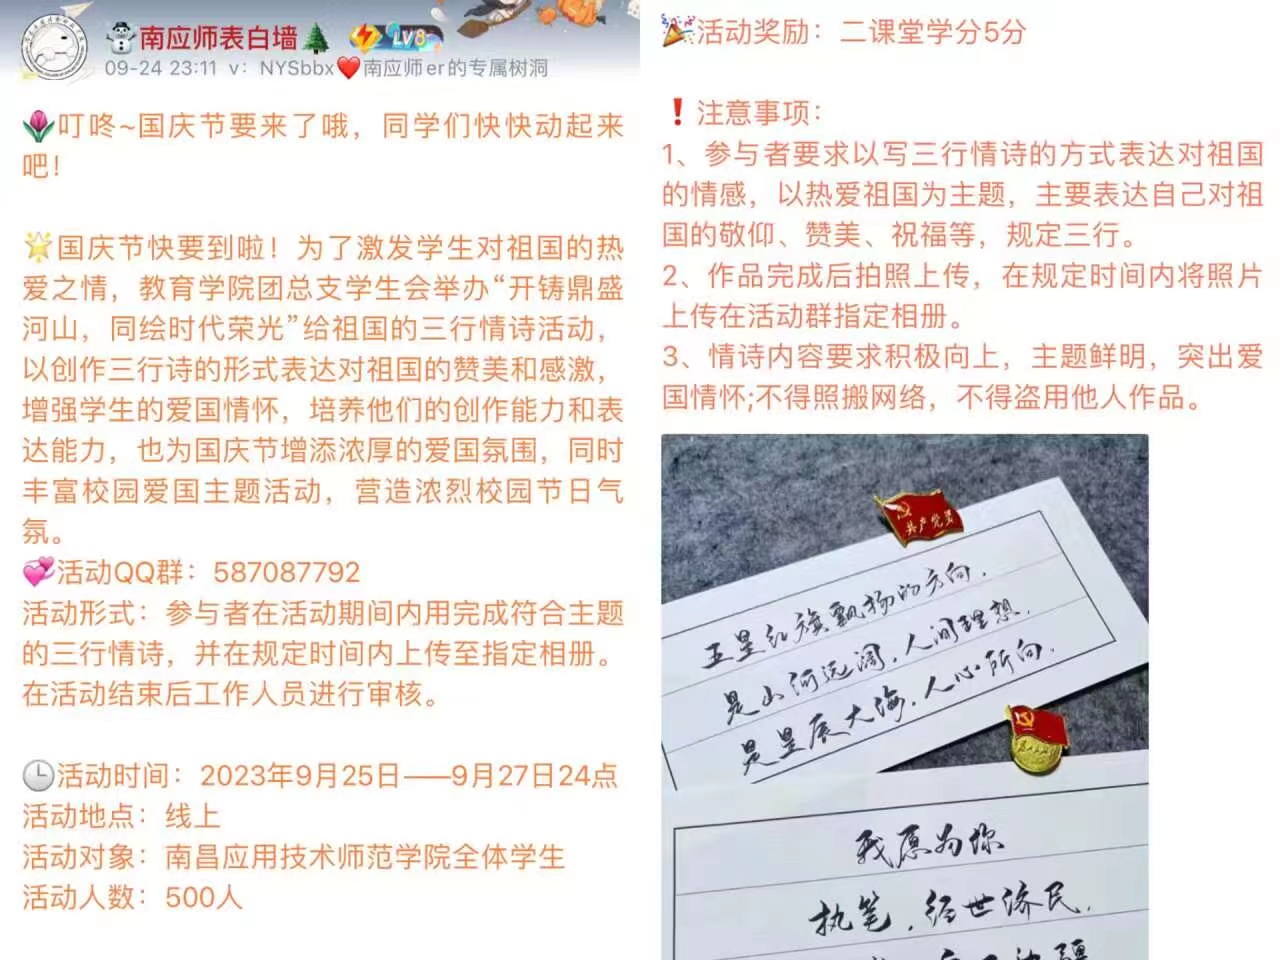 南应师表白墙
LV8
09-24 23:11 v：NYSbbx❤️南应师er的专属树洞
叮咚~国庆节要来了哦，同学们快快动起来
吧！
国庆节快要到啦！为了激发学生对祖国的热
爱之情，教育学院团总支学生会举办“开铸鼎盛
河山，同绘时代荣光”给祖国的三行情诗活动，
以创作三行诗的形式表达对祖国的赞美和感激，
增强学生的爱国情怀，培养他们的创作能力和表
达能力，也为国庆节增添浓厚的爱国氛围，同时
丰富校园爱国主题活动，营造浓烈校园节日气
氛。
活动QQ群：587087792
活动形式：参与者在活动期间内用完成符合主题
的三行情诗，并在规定时间内上传至指定相册。
在活动结束后工作人员进行审核。
活动时间：2023年9月25日——9月27日24点
活动地点：线上
活动对象：南昌应用技术师范学院全体学生
活动人数：500人
活动奖励：二课堂学分5分
❗注意事项：
1、参与者要求以写三行情诗的方式表达对祖国
的情感，以热爱祖国为主题，主要表达自己对祖
国的敬仰、赞美、祝福等，规定三行。
2、作品完成后拍照上传，在规定时间内将照片
上传在活动群指定相册。
3、情诗内容要求积极向上，主题鲜明，突出爱
国情怀;不得照搬网络，不得盗用他人作品。
共产党员
五星红旗飘扬的方向，
是山河远阔，人间理想，
是星辰大海，人心所向。
我愿为你
执笔，经世济民，